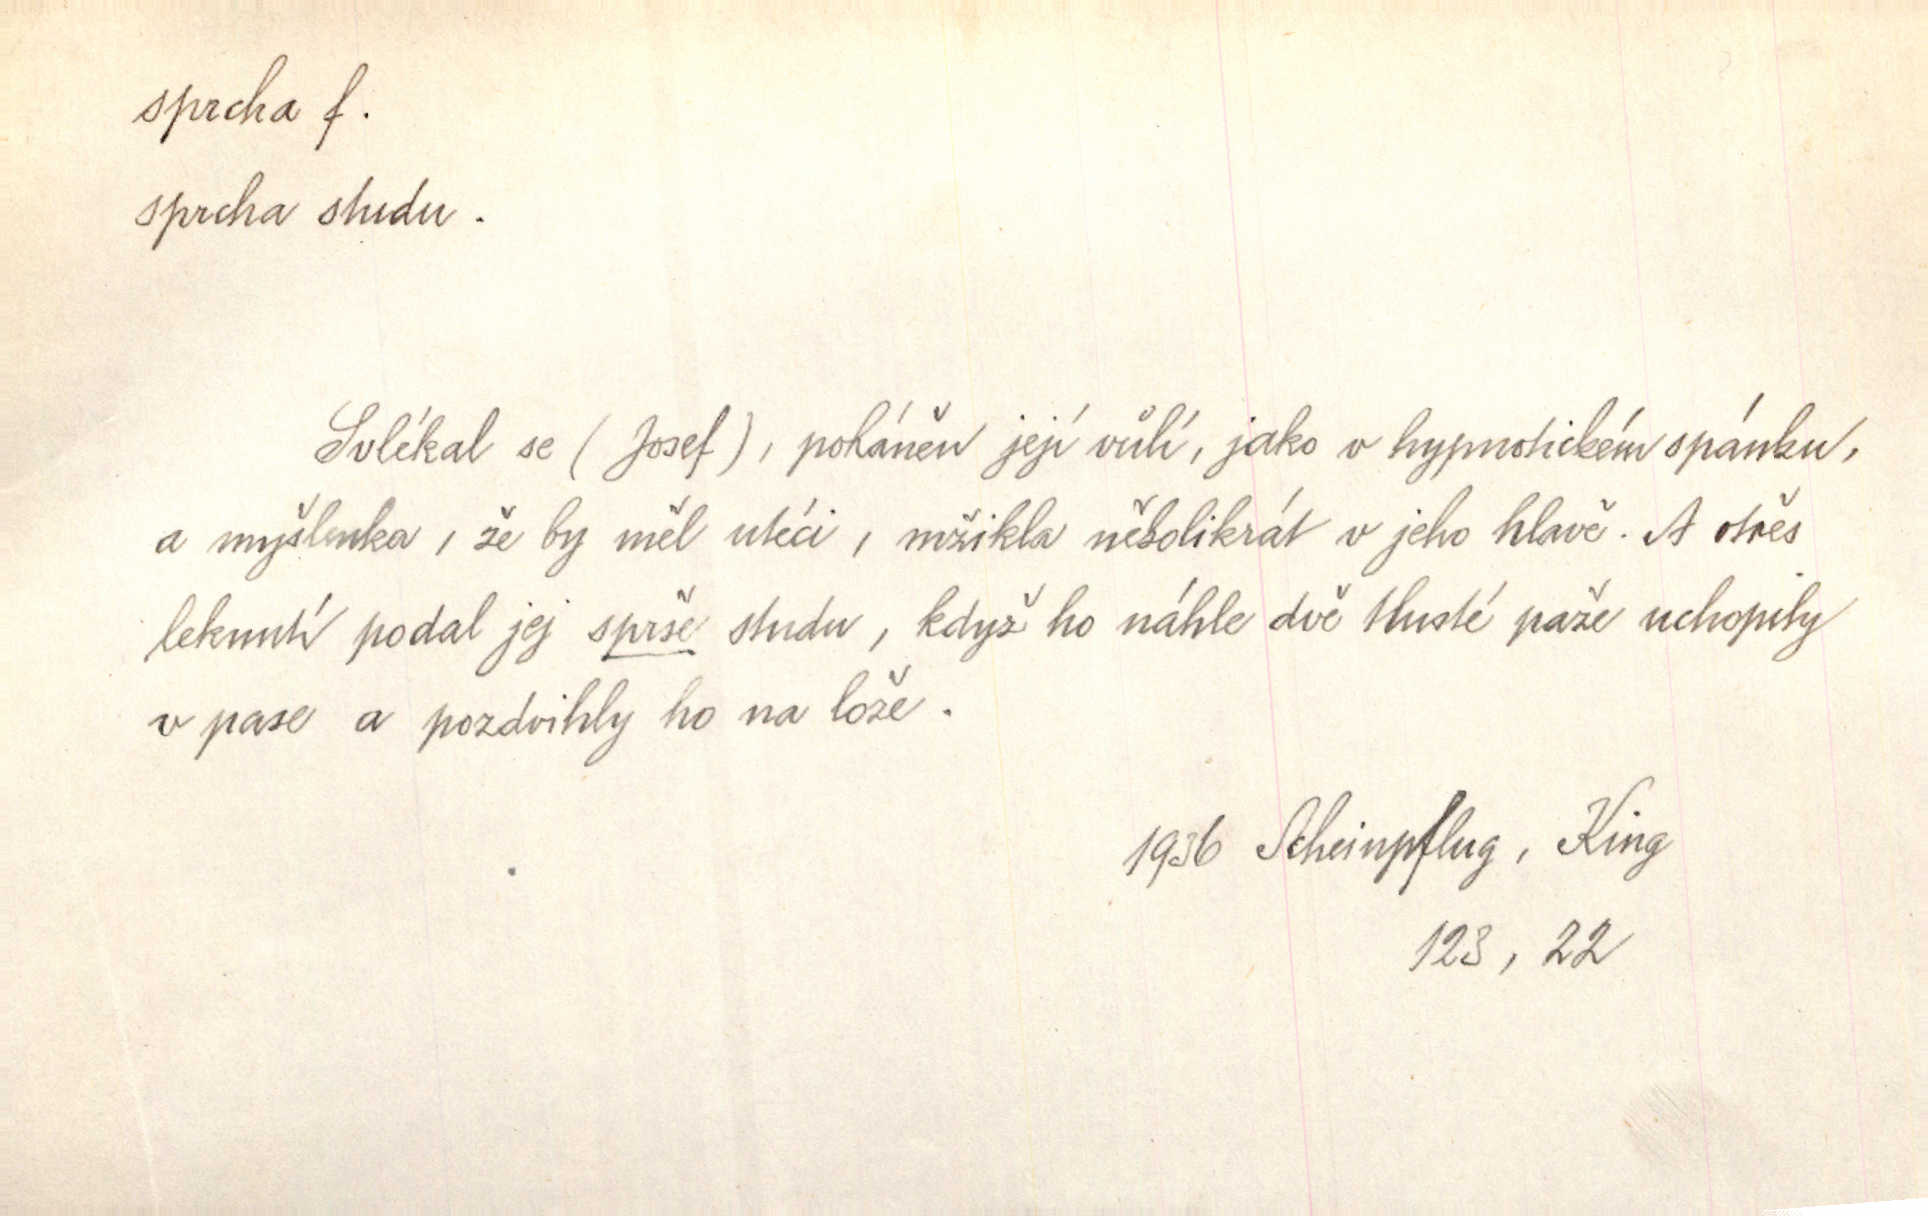 sprcha f.
sprcha studu.
Svlékal se (Josef), poháněn její vůlí, jako v hypnotickém spánku,
a myšlenka, že by měl utéci, mžikla několikrát v jeho hlavě. A otřes
leknutí podal jej sprše studu, když ho náhle dvě tlusté paže uchopily
v pase a pozdvihly ho na lože.
1936 Scheinpflug, King
123, 22